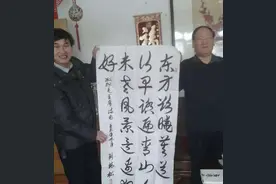 福
东方欲晓莫道
行早踏遍青山人
未老风景这边独
好